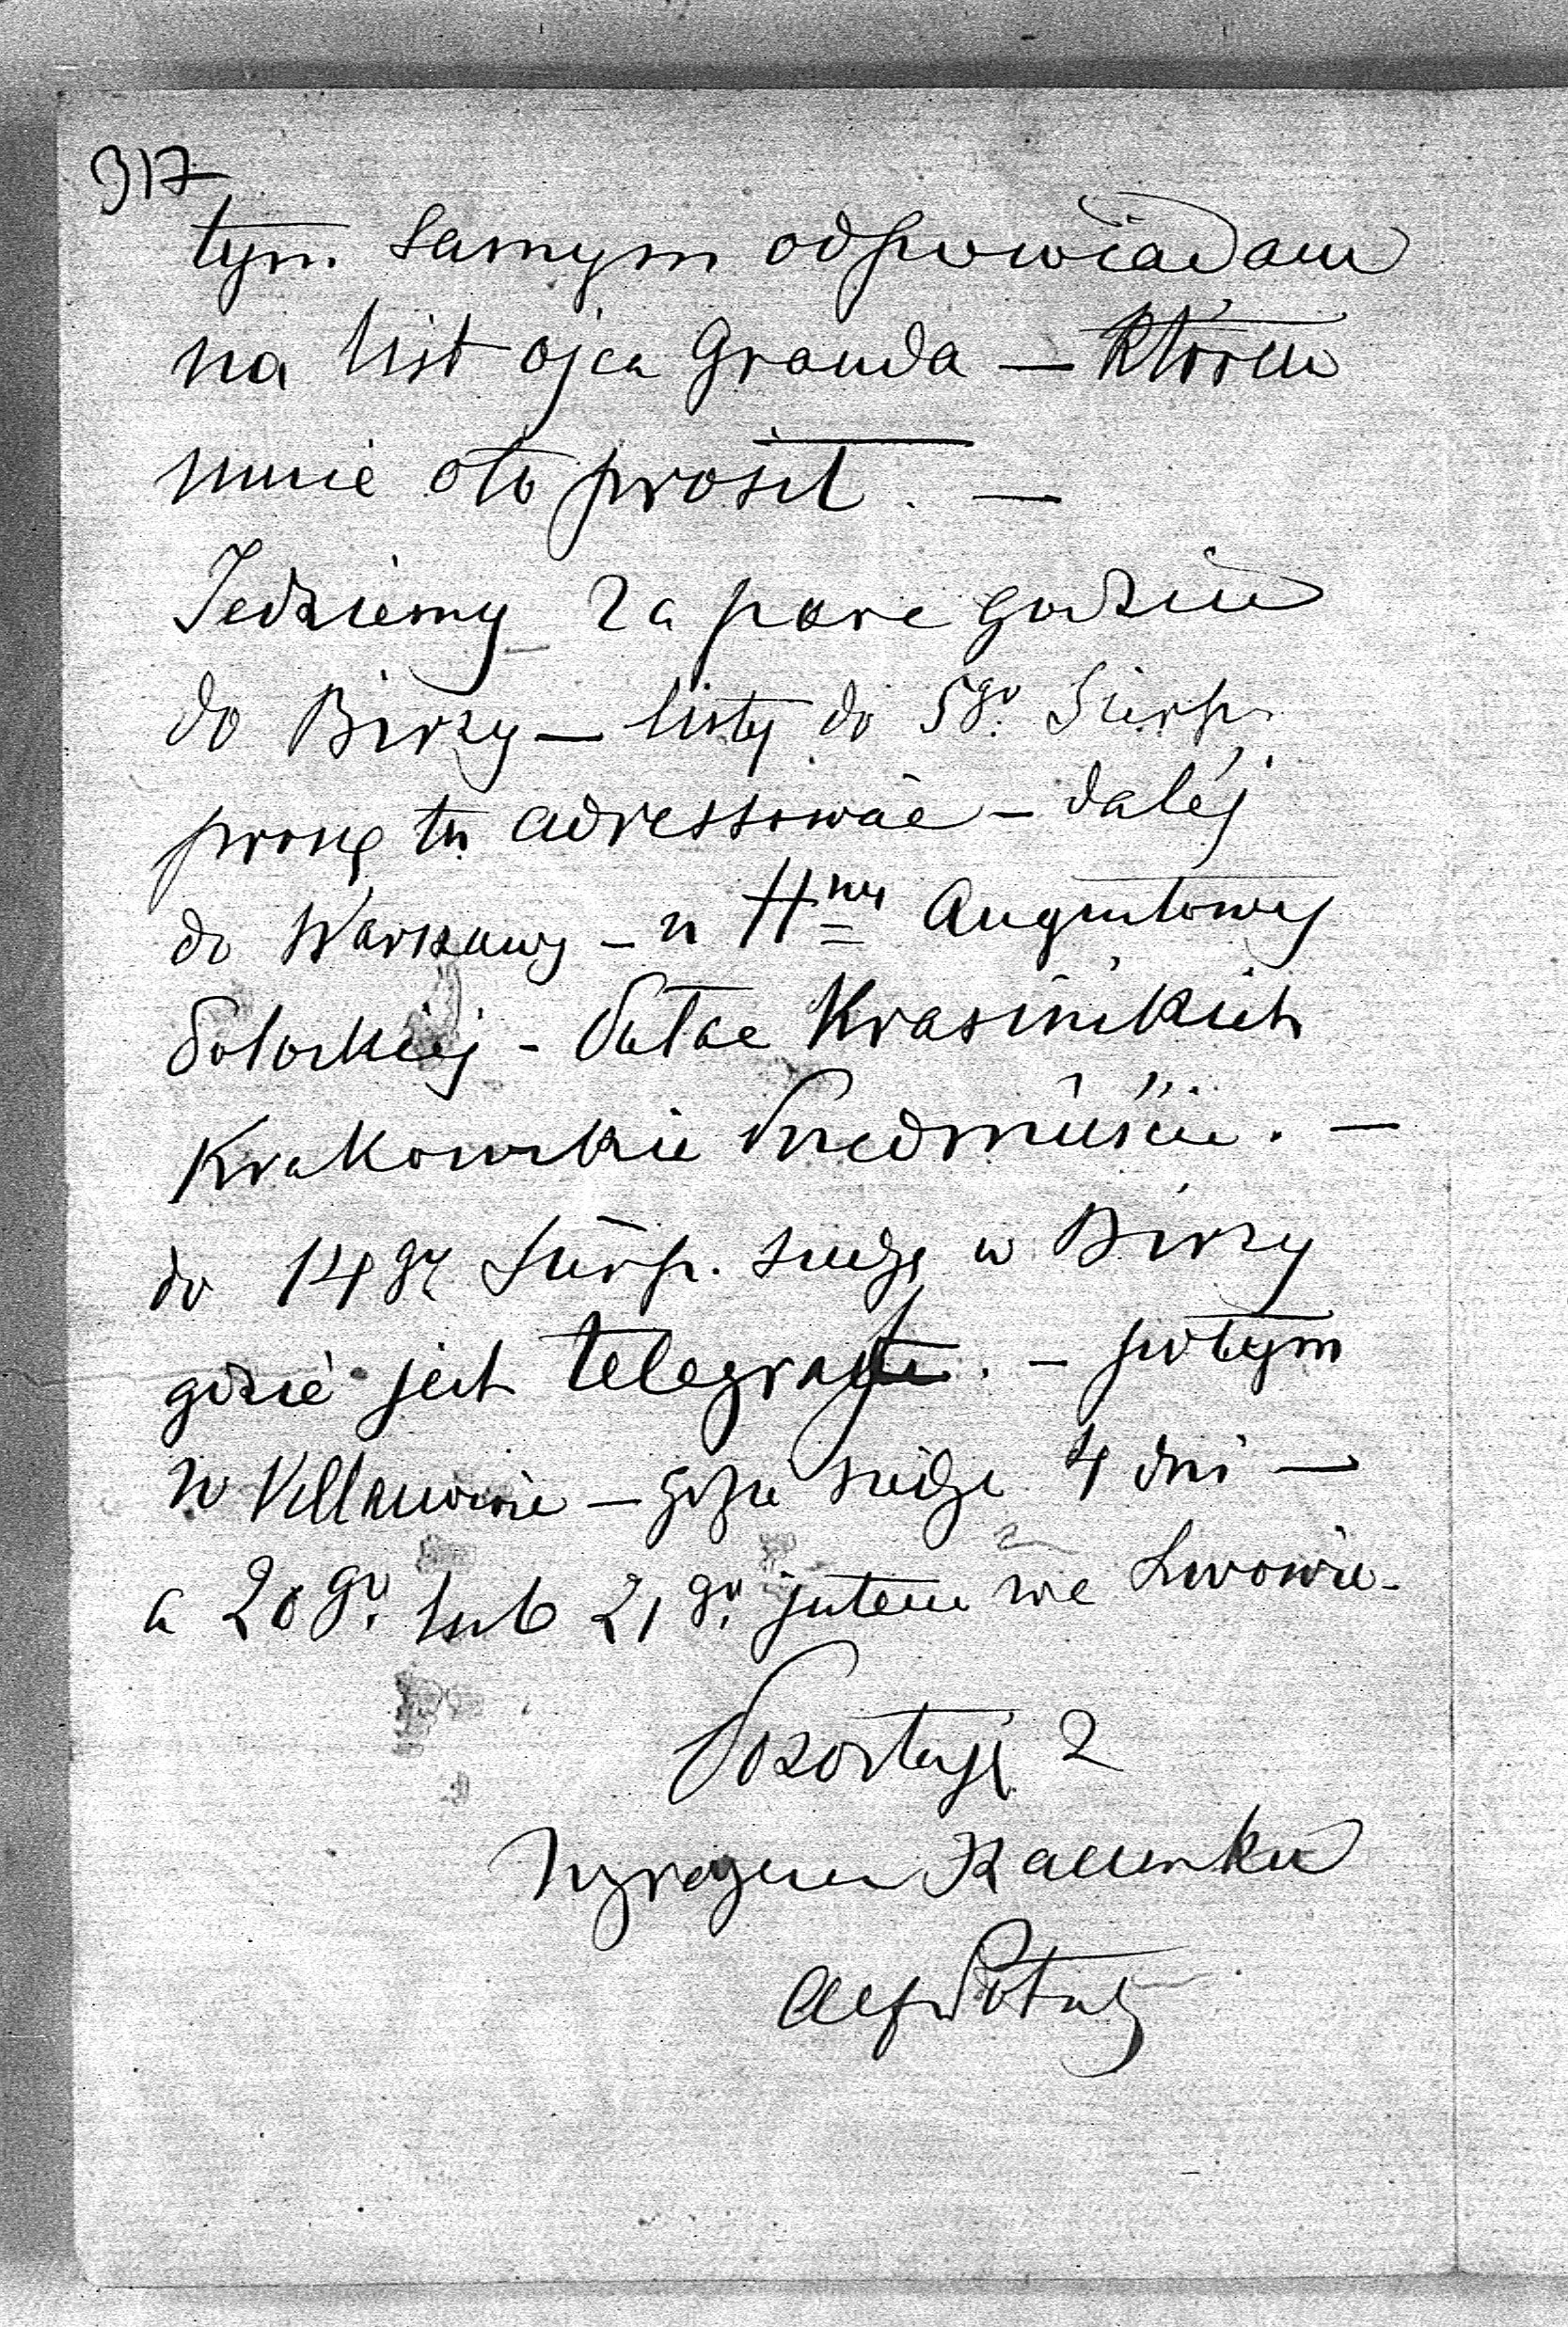 917
tym samym odpowiadam
na list ojca Granda — którem
mnie oto prosił. —
Jedziemy za pare godzin
do Birży — listy do 5go. Sierp.
proszę tu adressować — daléj
do Warszawy — u Hny Augustowej
Potockiej - Pałac Krasińskich
Krakowskie Przedmieście. —
do 14go Sierp. siedzę w Birży
gdzie jest telegraf. — potym
w Villanowie — gdzie siedzę 4 dni —
a 20go. lub 21go. jestem we Lwowie -
Pozostaję z
szacunkiem
Alf Potocki